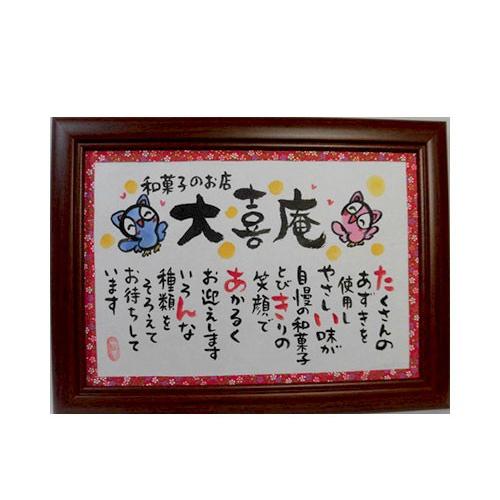 和菓子のお店
大喜庵
たくさんの
あずきを
使用し
やさしい味が
自慢の和菓子
とびきりの
笑顔で
あかるく
お迎えします
いろんな
種類を
そろえて
お待ちして
います